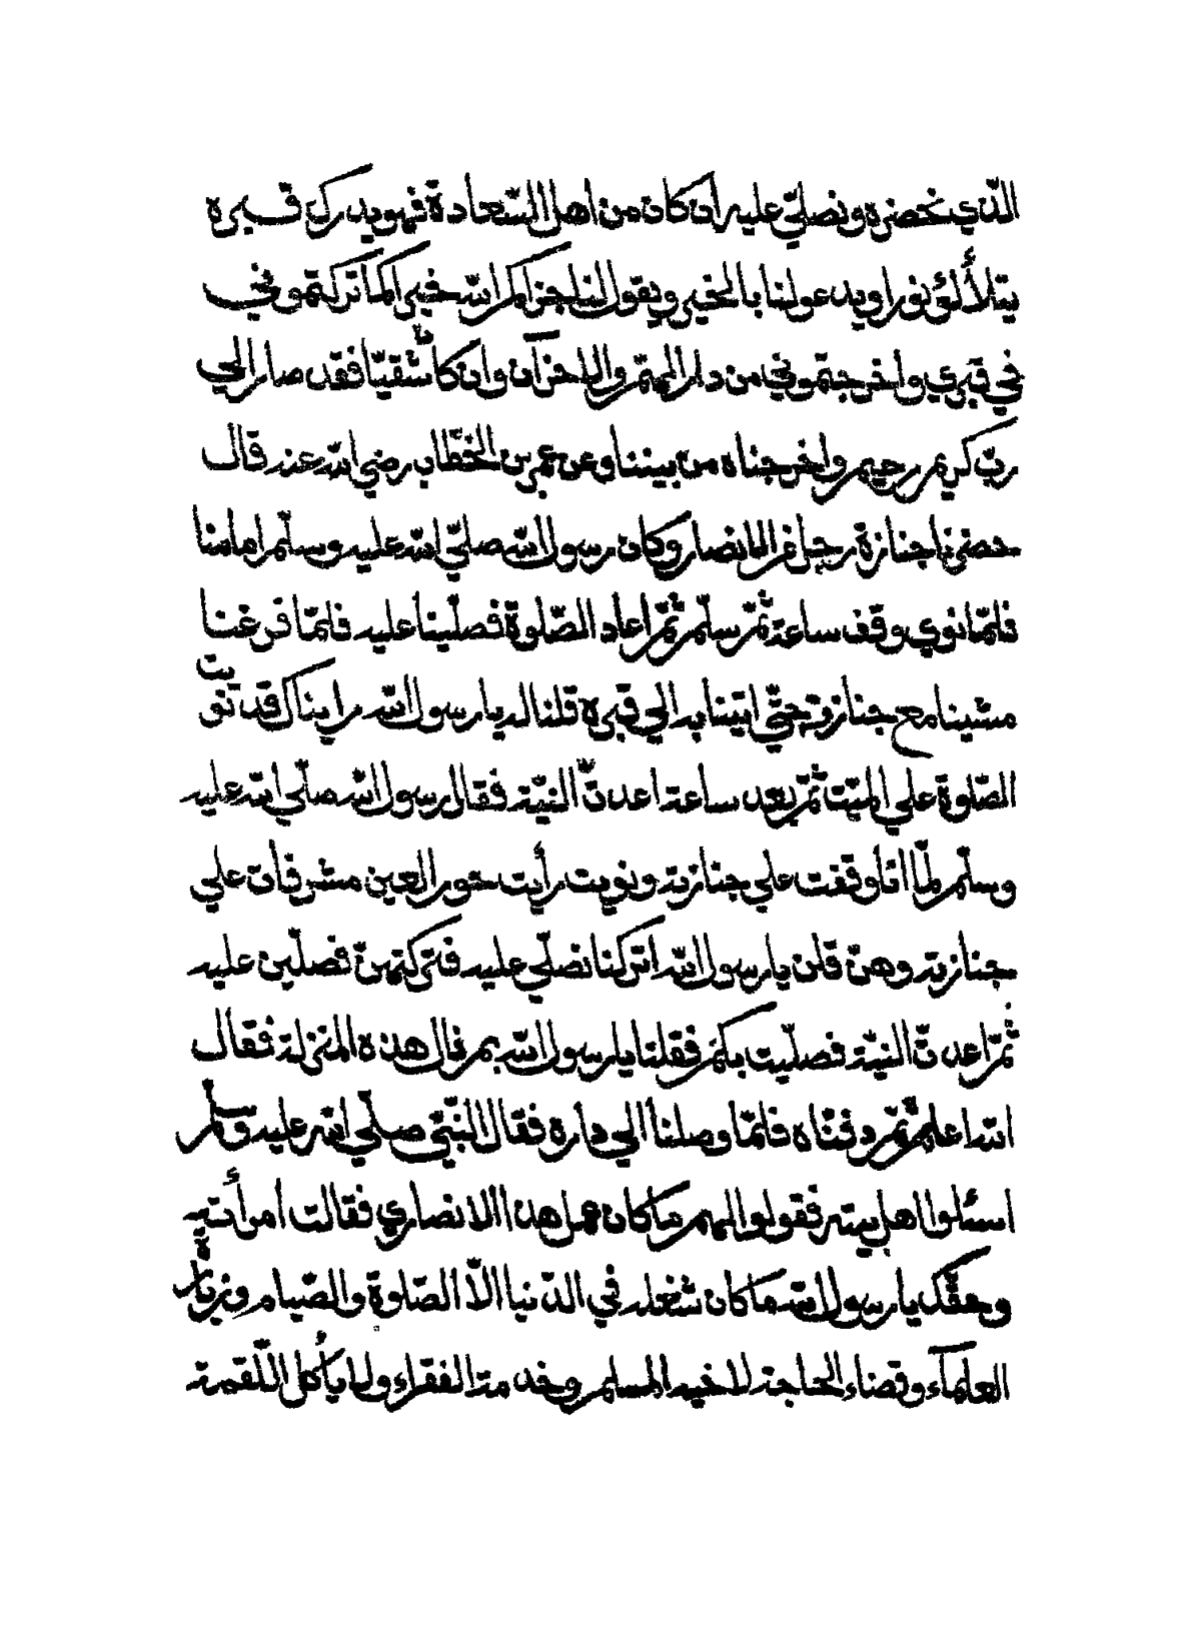 الّذي نحضره ونصلّي عليه ان كان من اهل السّعادة فهو يدرك قبره
يتلألؤ نورا ويدعو لنا بالخير ويقول لنا جزاكم الله خيرا كما تركتموني
في قبري واخرجتموني من دار الهمّ والاحزآن وان كان شقيّا فقد صار الي
ربّ كريم رحيم واخرجناه من بيننا وعن عمر بن الخطّاب رضي الله عنه قال
حضرنا جنازة رجل من الانصار وكان رسول الله صلّي الله عليه وسلّم امامنا
فلمّا نوي وقف ساعة ثمّ سلّم ثمّ اعاد الصّلوة فصلّينا عليه فلمّا فرغنا
مشينا مع جنازته حتّي اتينا به الي قبره قلنا له يا رسول الله رايناك قد نويت
الصّلوة علي الميّت ثمّ بعد ساعة اعدتّ النيّة فقال رسول الله صلّي الله عليه
وسلّم لمّا انا وقفت علي جنازته ونويت رأيت حور العين مشرفات علي
جنازته وهنّ قلن يا رسول الله اتركنا نصلّي عليه فتركتهنّ فصلّين عليه
ثمّ اعدتّ النيّة فصلّيت بكم فقلنا يا رسول الله بم نال هذه المنزلة فقال
الله اعلم ثمّ دفنّاه فلمّا وصلنا الي داره فقال النّبيّ صلّي الله عليه وسلّم
اسئلوا اهل بيته فقولوا لهم ما كان عمل هذا الانصاري فقالت امرأته
وحقّك يا رسول الله ما كان شغله في الدّنيا الاّ الصّلوة والصّيام وزيارة
العلمآء وقضاء الحاجة لاخيه المسلم وخدمة الفقراء ولا يأكل اللّقمة